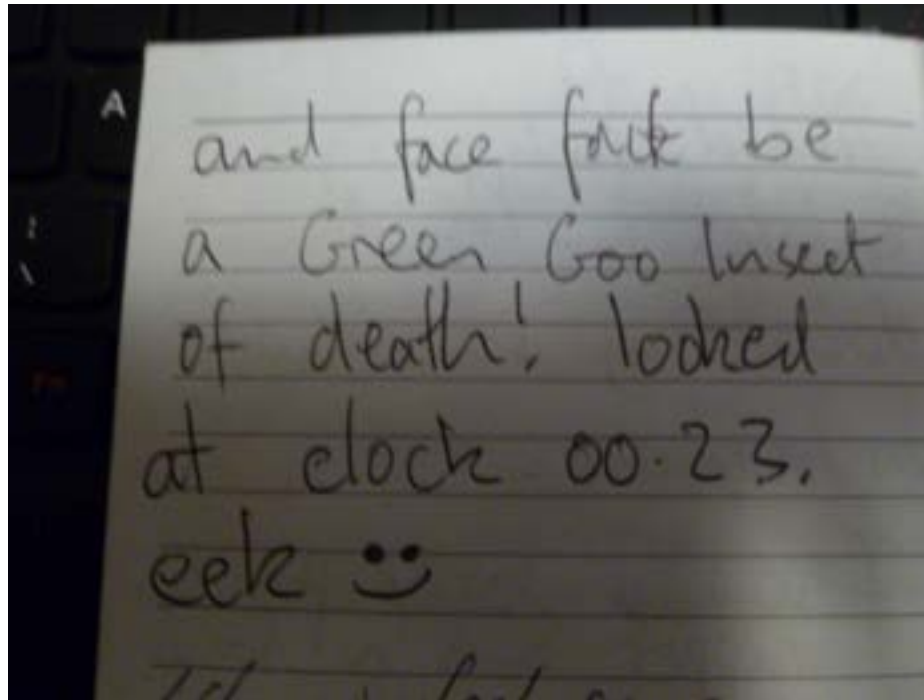 and face be
a Green Goo Insect
of death! looked
at clock 00.23.
eek
A